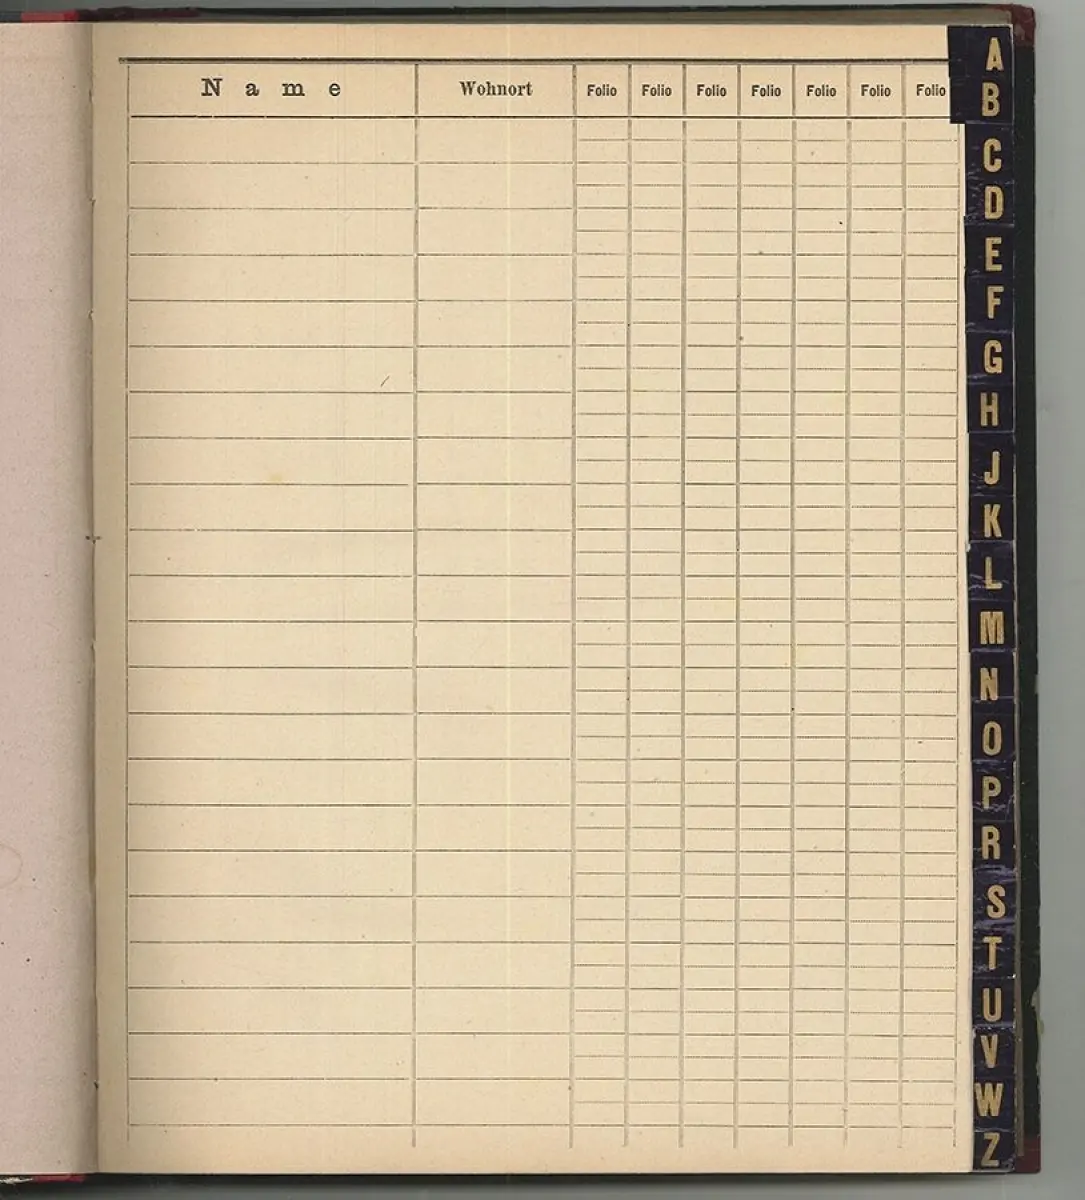 Name Wohnort Folio Folio Folio Folio Folio Folio Folio
A
B
C
D
E
F
G
H
J
K
L
M
N
O
P
R
S
T
U
V
W
Z